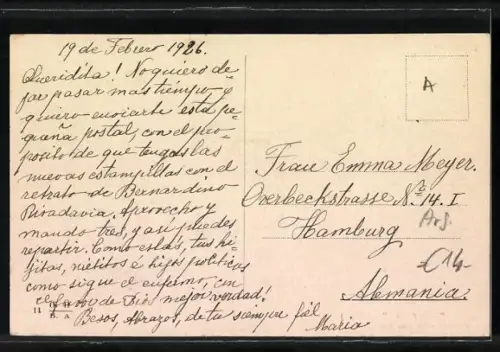 19 de Febrero 1926.
Queridita! No quiero de-
jar pasar mas tiempo y
quiero enviarte esta pe-
queña postal, con el pro-
posito de que tengas las
nuevas estampillas con el
retrato de Bernardino
Rivadavia, Aprovecho y
mando tres, y así puedes
repartir. Como estás, tus hi-
jitas, nietitos é hijos politicos
como sigue el enfermo, con
el favor de Dios mejor verdad!
Besos, Abrazos, de tu siempre fiél
Maria
A
Frau Emma Meyer.
Overbeckstrasse Nr. 14. I
Hamburg
Arg.
€14-
Alemania.
11